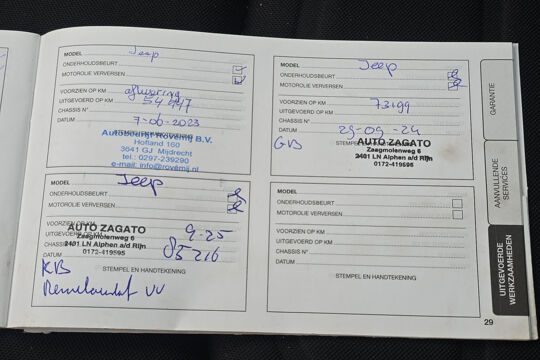 MODEL Jeep
ONDERHOUDSBEURT
MOTOROLIE VERVERSEN
VOORZIEN OP KM aflevering
UITGEVOERD OP KM
CHASSIS N°
DATUM 7-06-2023
STEMPEL EN HANDTEKENING
Autobedrijf Rovémij B.V.
Hofland 160
3641 GJ Mijdrecht
tel.: 0297-239290
e-mail: info@rovemij.nl
MODEL Jeep
ONDERHOUDSBEURT
MOTOROLIE VERVERSEN
VOORZIEN OP KM
UITGEVOERD OP KM 73199
CHASSIS N°
DATUM 29-09-24
STEMPEL EN
AUTO ZAGATO
Zaagmolenweg 6
2401 LN Alphen a/d Rijn
0172-419595
GB
MODEL Jeep
ONDERHOUDSBEURT
MOTOROLIE VERVERSEN
VOORZIEN OP KM
UITGEVOERD OP KM 9-25
CHASSIS 85216
DATUM
AUTO ZAGATO
Zaagmolenweg 6
2401 LN Alphen a/d Rijn
0172-419595
STEMPEL EN HANDTEKENING
KB
Remvloeistof VV
MODEL
ONDERHOUDSBEURT
MOTOROLIE VERVERSEN
VOORZIEN OP KM
UITGEVOERD OP KM
CHASSIS N°
DATUM
STEMPEL EN HANDTEKENING
GARANTIE
AANVULLENDE
SERVICES
UITGEVOERDE
WERKZAAMHEDEN
29